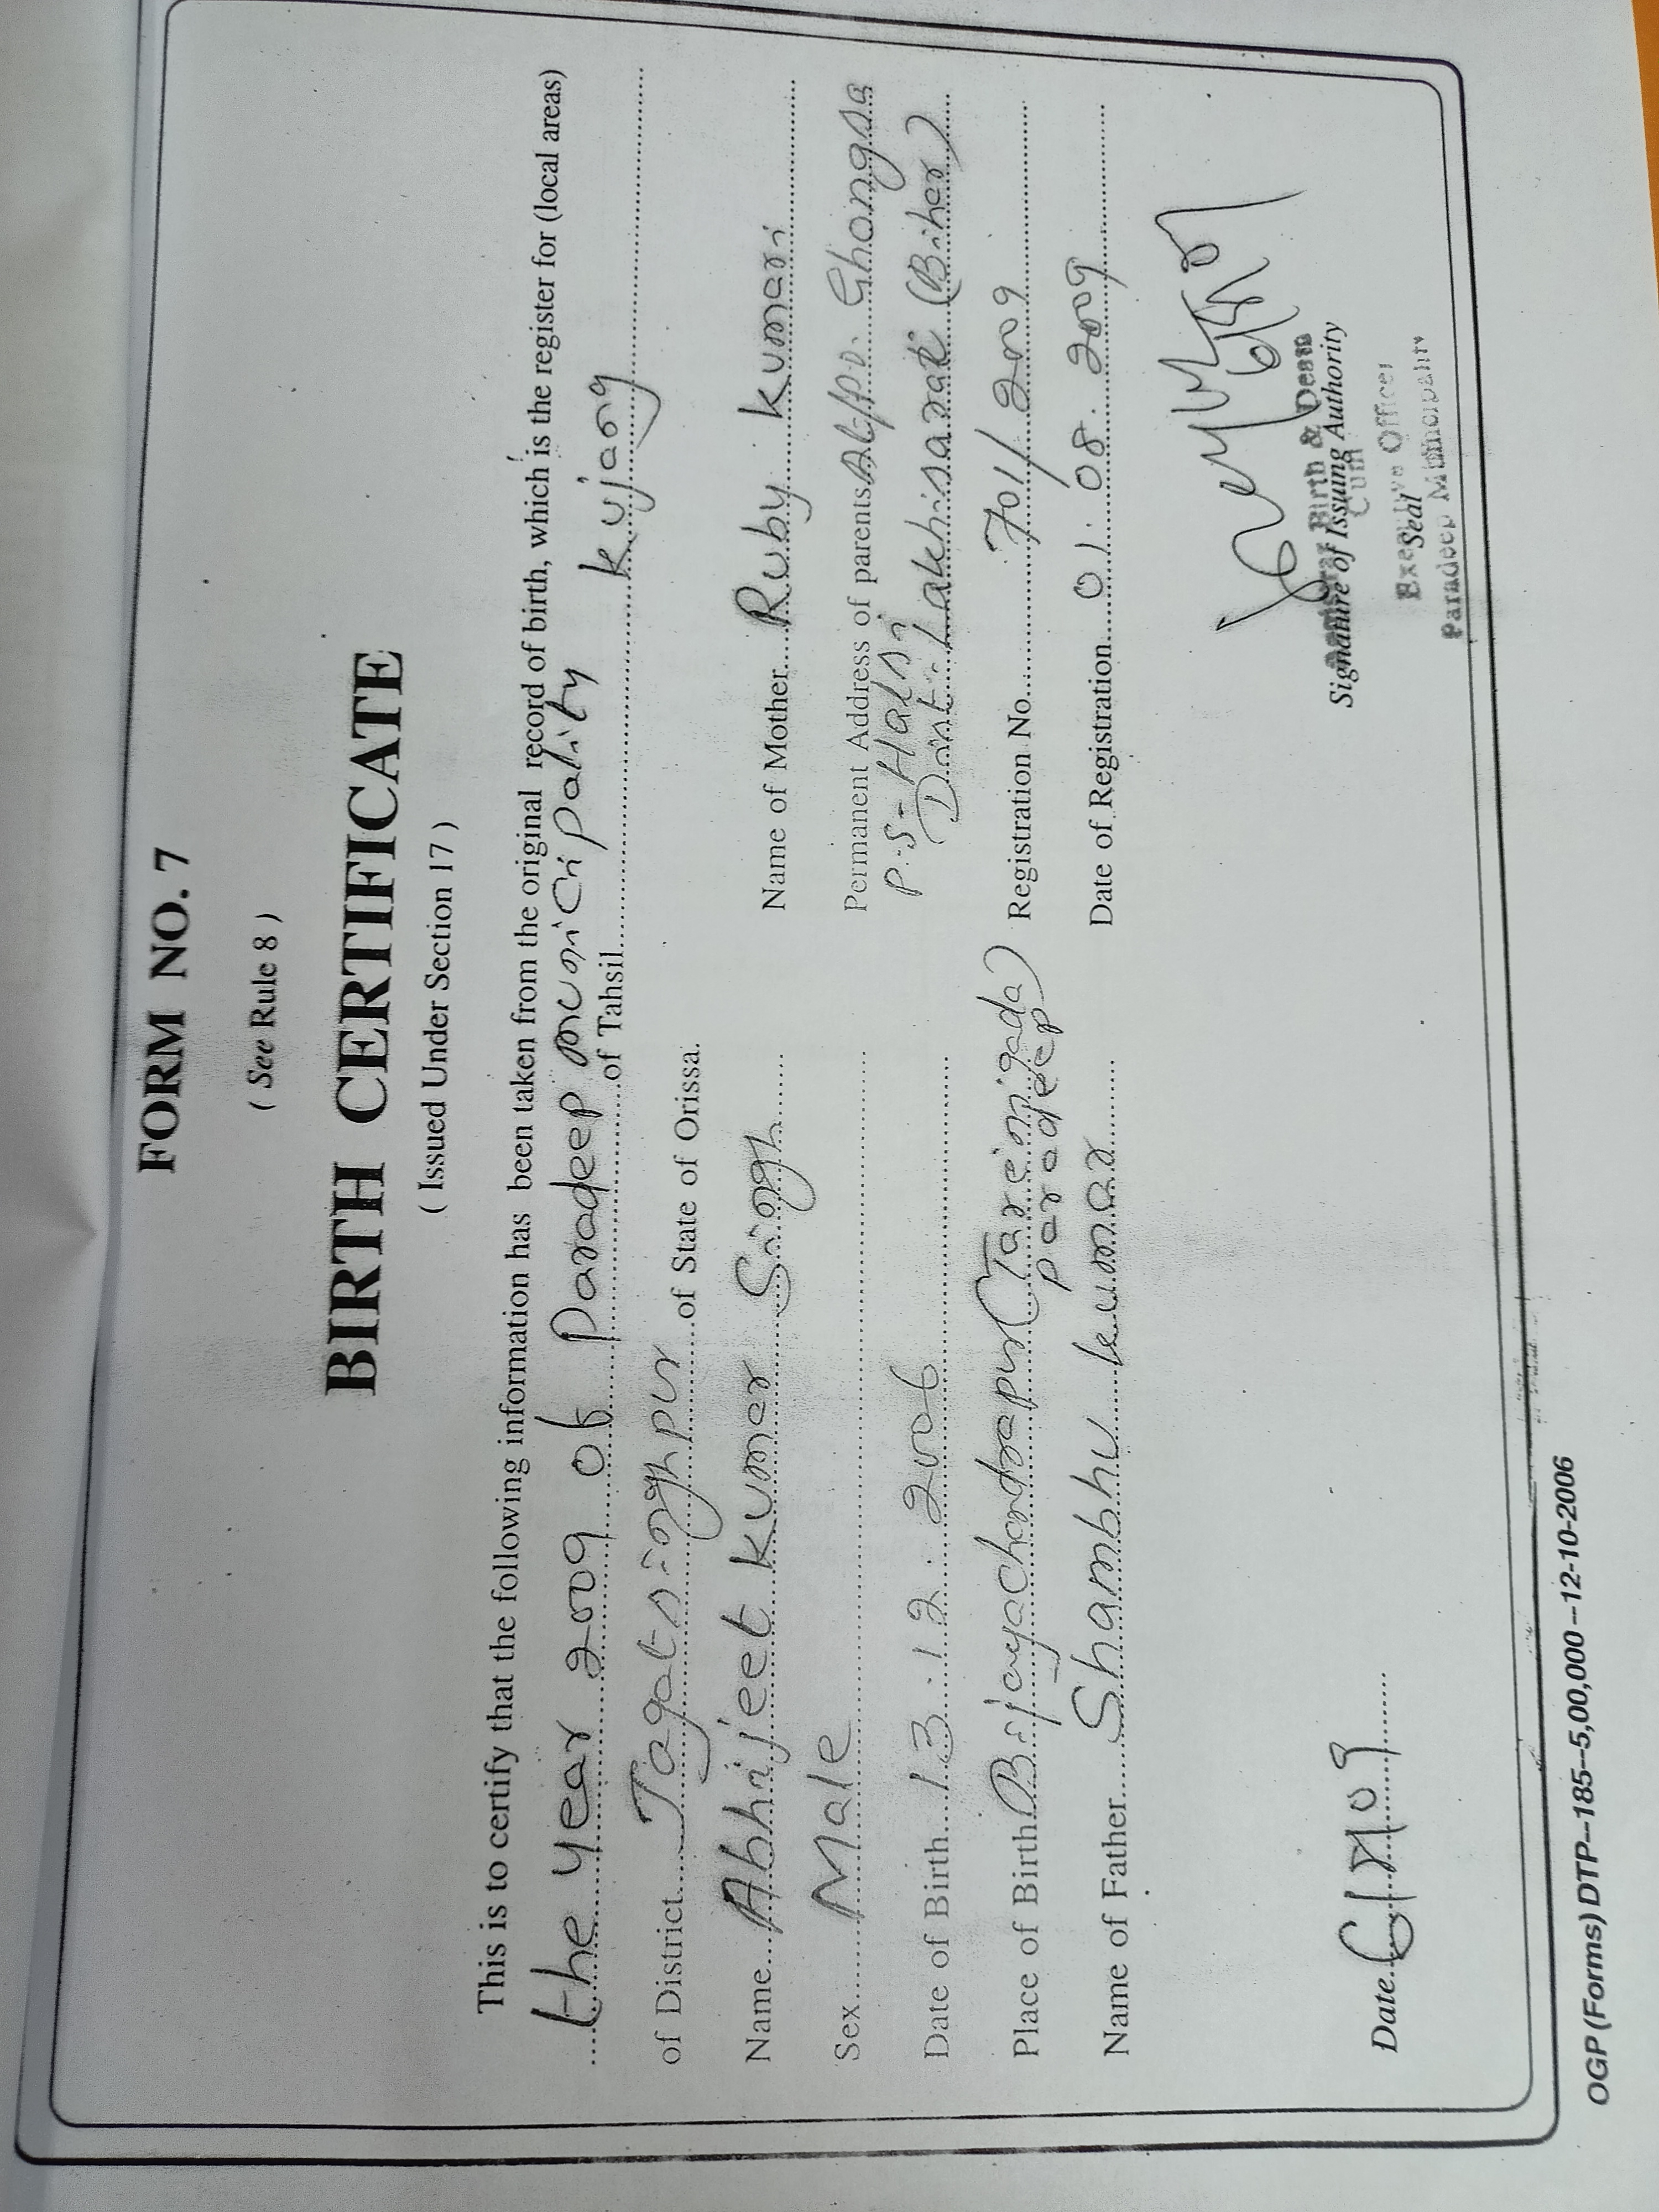 FORM NO. 7
( See Rule 8 )
BIRTH CERTIFICATE
( Issued Under Section 17 )
This is to certify that the following information has been taken from the original record of birth, which is the register for (local areas)
the year 2009 of Paradeep municipality of Tahsil kujang
of District Jagatsinghpur of State of Orissa.
Name Abhijeet kumar Singh
Name of Mother Ruby kumari
Sex Male
Permanent Address of parents At/po. Ghongsa
P.S- Halsi
Dist. Lakhisarai (Bihar)
Date of Birth 13.12.2006
Place of Birth Bijayachandrapur (Tarinigada)
paradeep
Registration No. 7011/2009
Name of Father Shambhu kumar
Date of Registration 01.08.2009
Birth & Death
Signature of Issuing Authority
Cum
Executive Officer
Seal
Paradeep Municipality
Date
OGP (Forms) DTP--185--5,00,000--12-10-2006